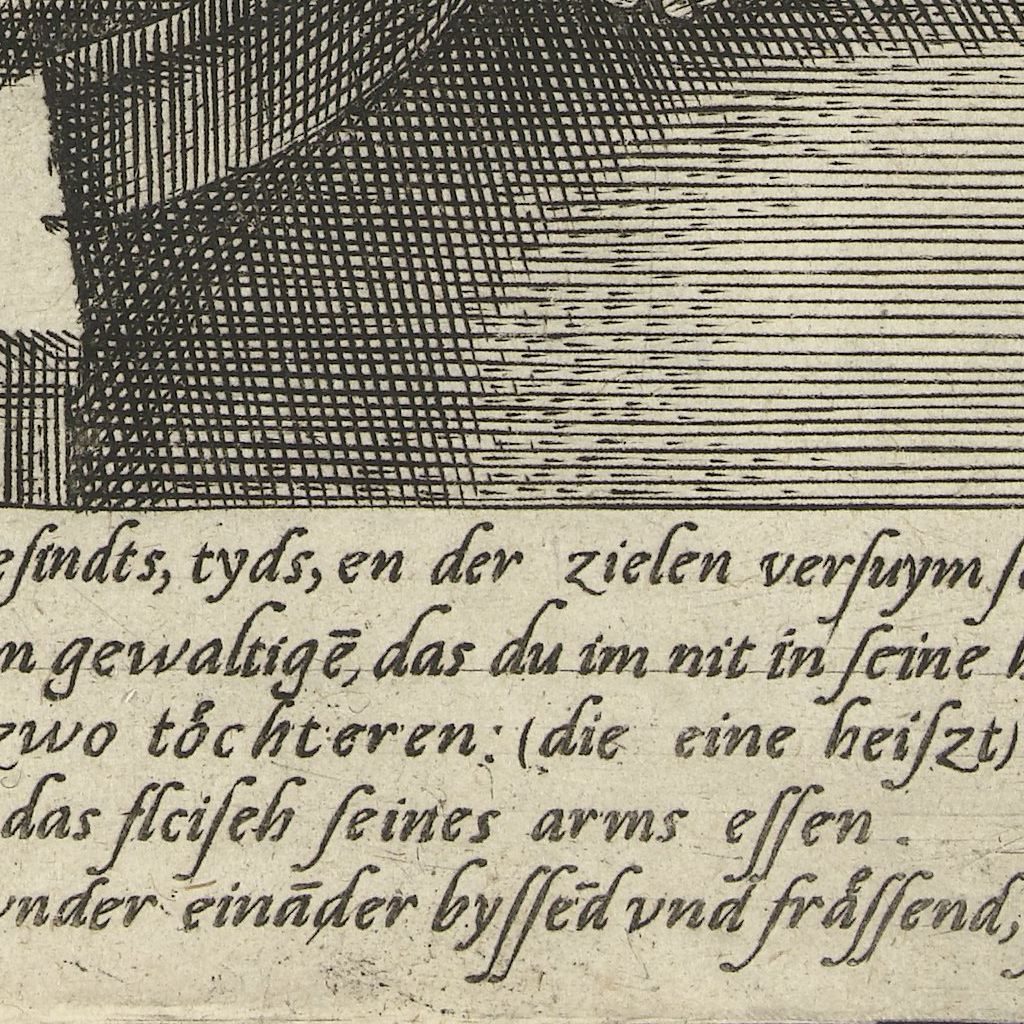 eſindts, tyds, en der zielen verſuym
n gewaltigē, das du im nit in ſeine
zwo toͤchteren: (die eine heiſzt)
das flciſeh ſeines arms eſſen.
vnder eināder byſſēd vnd fraͤſſend,